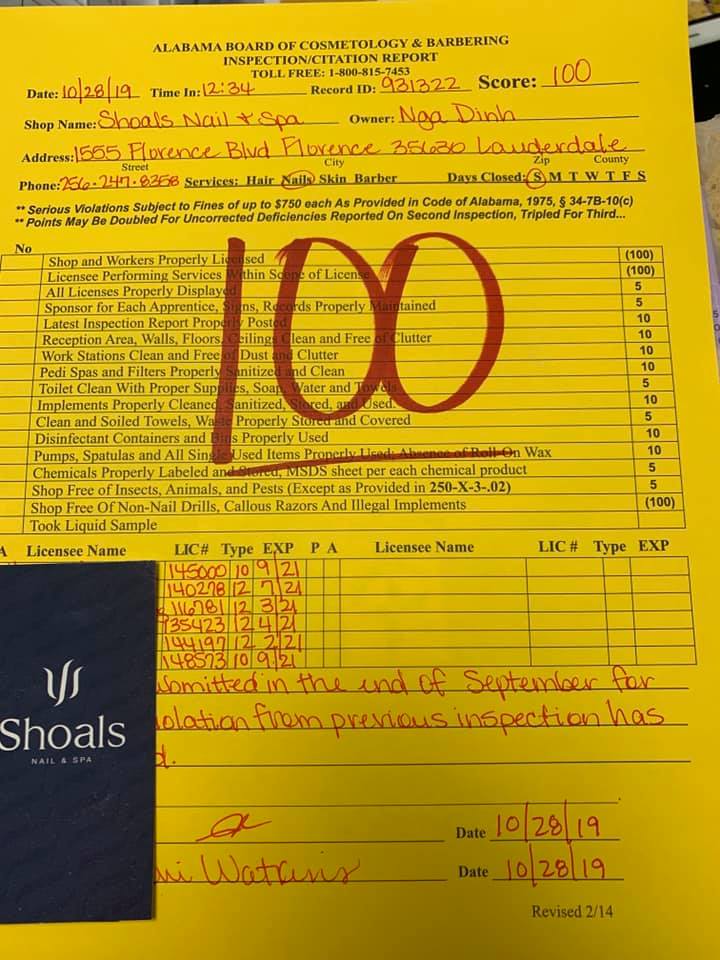 ALABAMA BOARD OF COSMETOLOGY & BARBERING
INSPECTION/CITATION REPORT
TOLL FREE: 1-800-815-7453
Date: 10/28/19 Time In: 12:34 Record ID: 931322 Score: 100
Shop Name: Shoals Nail + Spa Owner: Nga Dinh
Address: 1555 Florence Blvd Florence 35630 Lauderdale
Street City Zip County
Phone: 256-247-8358 Services: Hair Nails Skin Barber Days Closed: S M T W T F S
** Serious Violations Subject to Fines of up to $750 each As Provided in Code of Alabama, 1975, § 34-7B-10(c)
** Points May Be Doubled For Uncorrected Deficiencies Reported On Second Inspection, Tripled For Third...
No
Shop and Workers Properly Licensed (100)
Licensee Performing Services Within Scope of License (100)
All Licenses Properly Displayed 5
Sponsor for Each Apprentice, Signs, Records Properly Maintained 5
Latest Inspection Report Properly Posted 10
Reception Area, Walls, Floors, Ceilings Clean and Free of Clutter 10
Work Stations Clean and Free of Dust and Clutter 10
Pedi Spas and Filters Properly Sanitized and Clean 10
Toilet Clean With Proper Supplies, Soap, Water and Towels 5
Implements Properly Cleaned, Sanitized, Stored, and Used. 10
Clean and Soiled Towels, Waste Properly Stored and Covered 5
Disinfectant Containers and Bins Properly Used 10
Pumps, Spatulas and All Single Used Items Properly Used; Absence of Roll-On Wax 10
Chemicals Properly Labeled and Stored, MSDS sheet per each chemical product 5
Shop Free of Insects, Animals, and Pests (Except as Provided in 250-X-3-.02) 5
Shop Free Of Non-Nail Drills, Callous Razors And Illegal Implements (100)
Took Liquid Sample
100
A Licensee Name LIC# Type EXP P A Licensee Name LIC # Type EXP
145000 10 9/21
140278 12 7/21
116781 12 3/21
135423 12 4/21
144197 12 2/21
148573 10 9/21
ubmitted in the end of September for
iolation from previous inspection has
d.
Shoals
NAIL & SPA
Date 10/28/19
Watkins Date 10/28/19
Revised 2/14